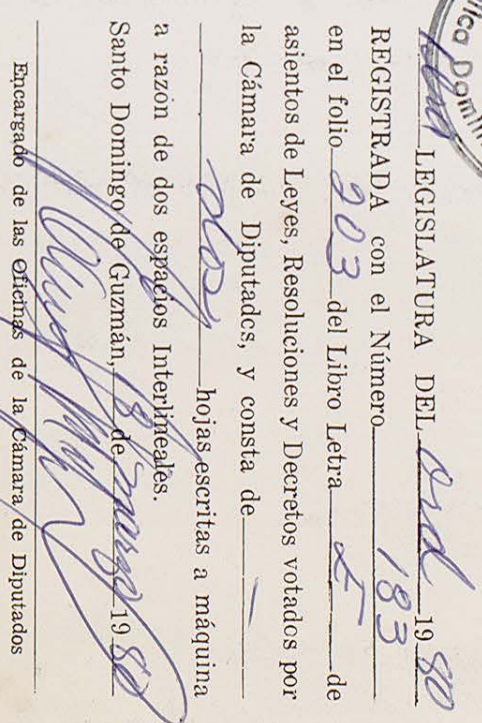 lica Domini
LEGISLATURA DEL Ord 1980
REGISTRADA con el Número 183
en el folio 203 del Libro Letra de
asientos de Leyes, Resoluciones y Decretos votados por
la Cámara de Diputados, y consta de
dos hojas escritas a máquina
a razón de dos espacios Interlineales.
Santo Domingo de Guzmán, 18 de marzo 1980
Encargado de las Oficinas de la Cámara de Diputados